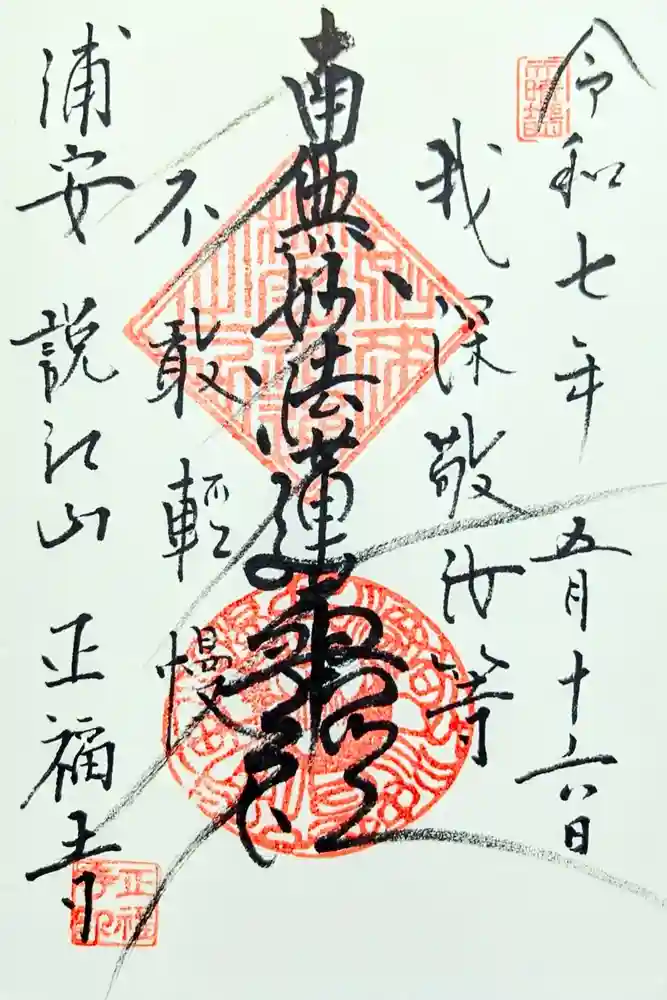 令和七年五月十六日
我深敬汝等
南無妙法蓮華経
不敢軽慢
浦安 説江山 正福寺
正福寺印